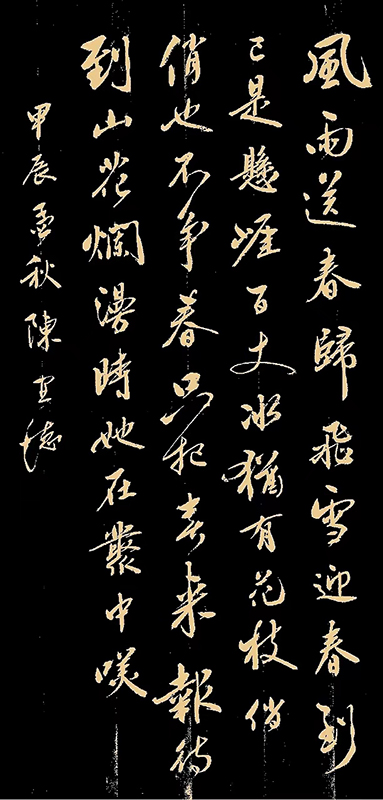 風雨送春歸飛雪迎春到
已是懸崖百丈冰猶有花枝俏
俏也不爭春只把春來報待
到山花爛漫時她在叢中笑
甲辰孟秋陳宜德